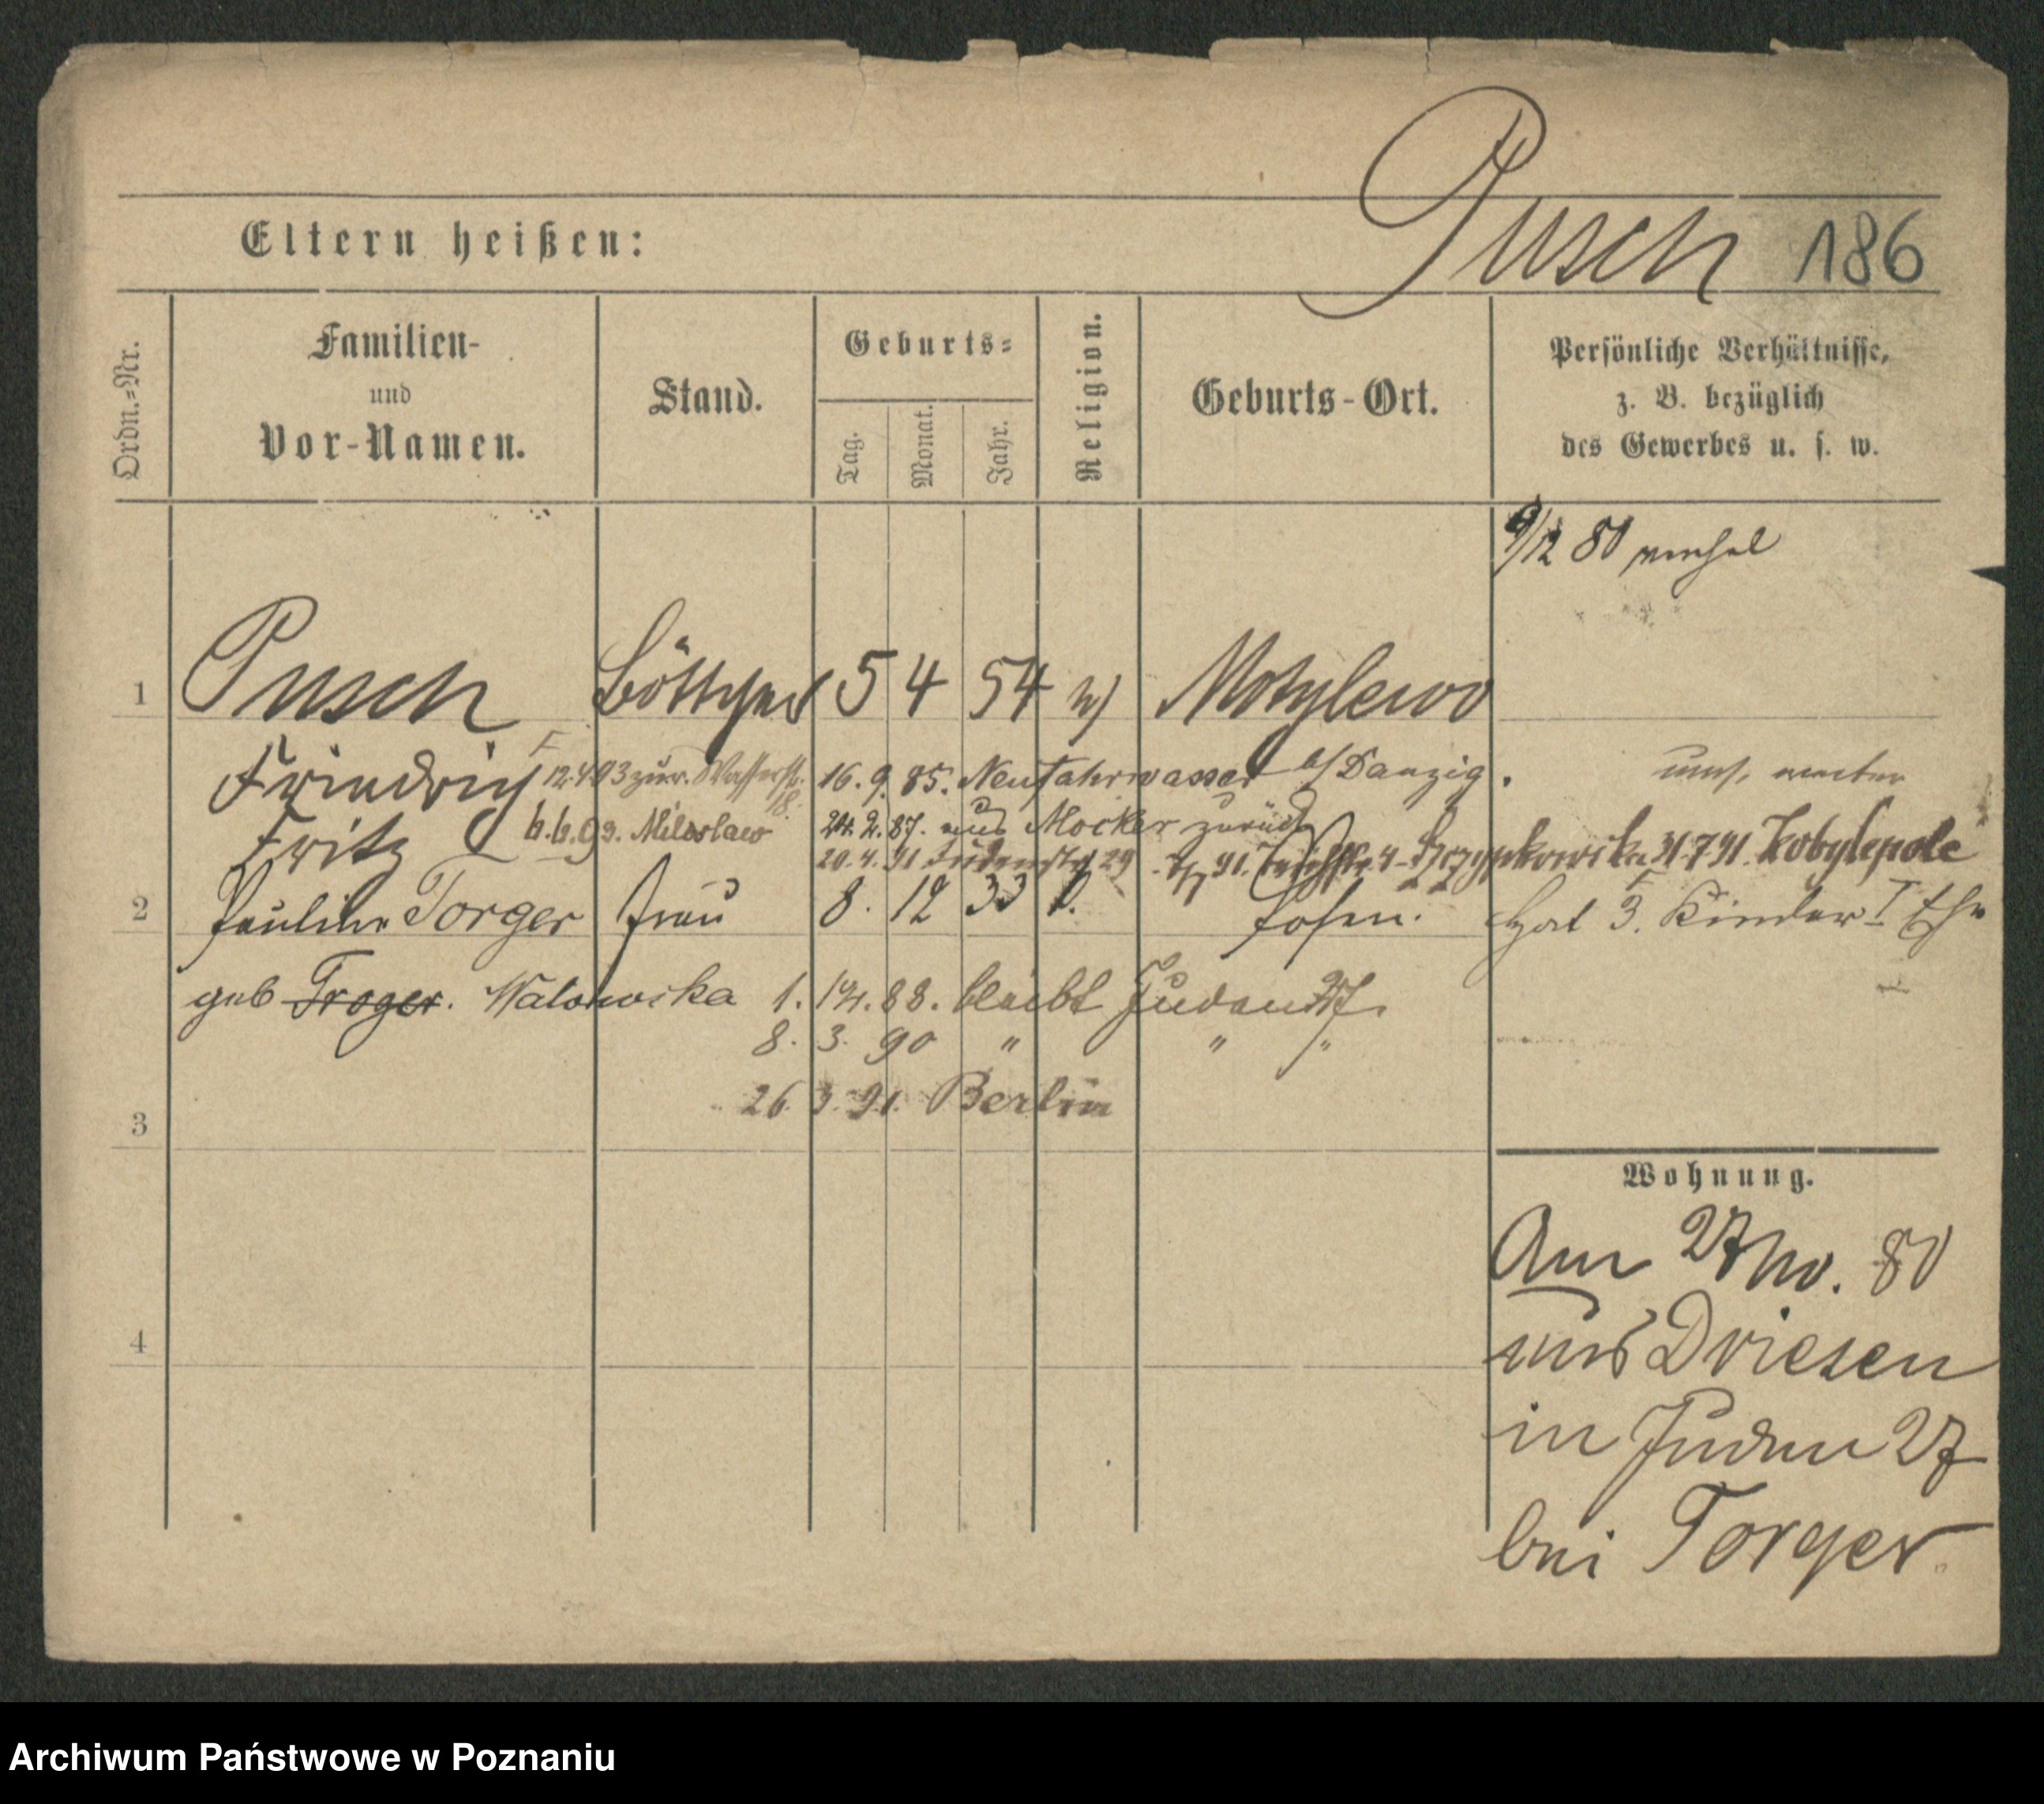 Pusch 186
Eltern heißen:
Ordn.=Nr.
Familien-
und
Vor-Namen.
Stand.
Geburts=
Tag.
Monat.
Jahr.
Religion.
Geburts-Ort.
Persönliche Verhältnisse,
z. B. bezüglich
des Gewerbes u. s. w.
9/12 80
1 Pusch Böttcher 5 4 54 Motylewo
Friedrich 12.4.93 zur. Wasserst. 18. 16. 9. 85. Neufahrwasser b/Danzig.
Fritz 6.6.93. Miloslaw 24. 2. 87. aus Mocker zurück
20. 4. 91 Judenstr 29 31.7.91. Kobylepole
2 Pauline Torger Frau 8. 12 33 Posen. Hat 3. Kinder I Ehe
geb Troger. Walonoska 1. 88. bleibt Juden 27.
8. 3. 90 " " "
26. 3. 91. Berlin
3
Wohnung.
Am 27 No. 80
aus Driesen
in Juden 27
bei Torger
4
Archiwum Państwowe w Poznaniu